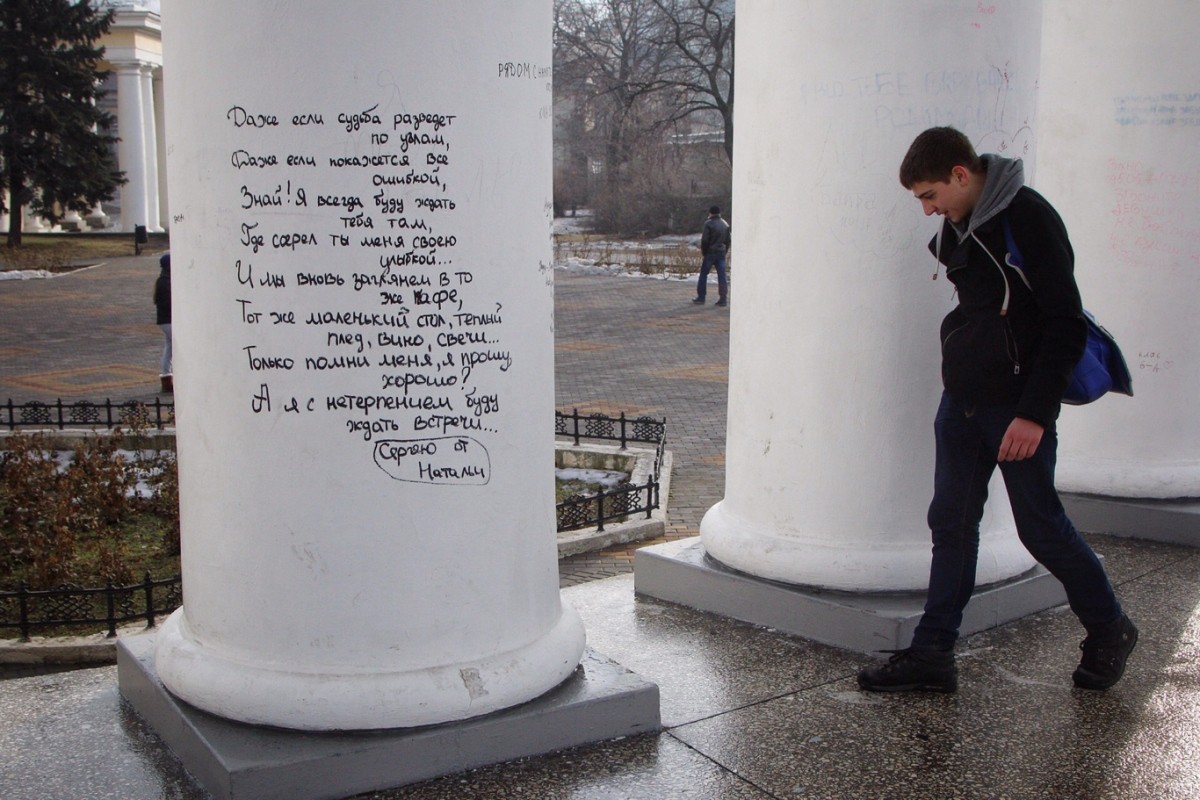 Даже если судьба разведет
по узлам,
Даже если покажется все
ошибкой,
Знай! Я всегда буду ждать
тебя там,
Где согрел ты меня своею
улыбкой...
И мы вновь заглянем в то
же кафе,
Тот же маленький стол, теплый
плед, вино, свечи...
Только помни меня, я прошу,
хорошо?
А я с нетерпением буду
ждать встречи...
Сергею от
Натальи
РЯДОМ С